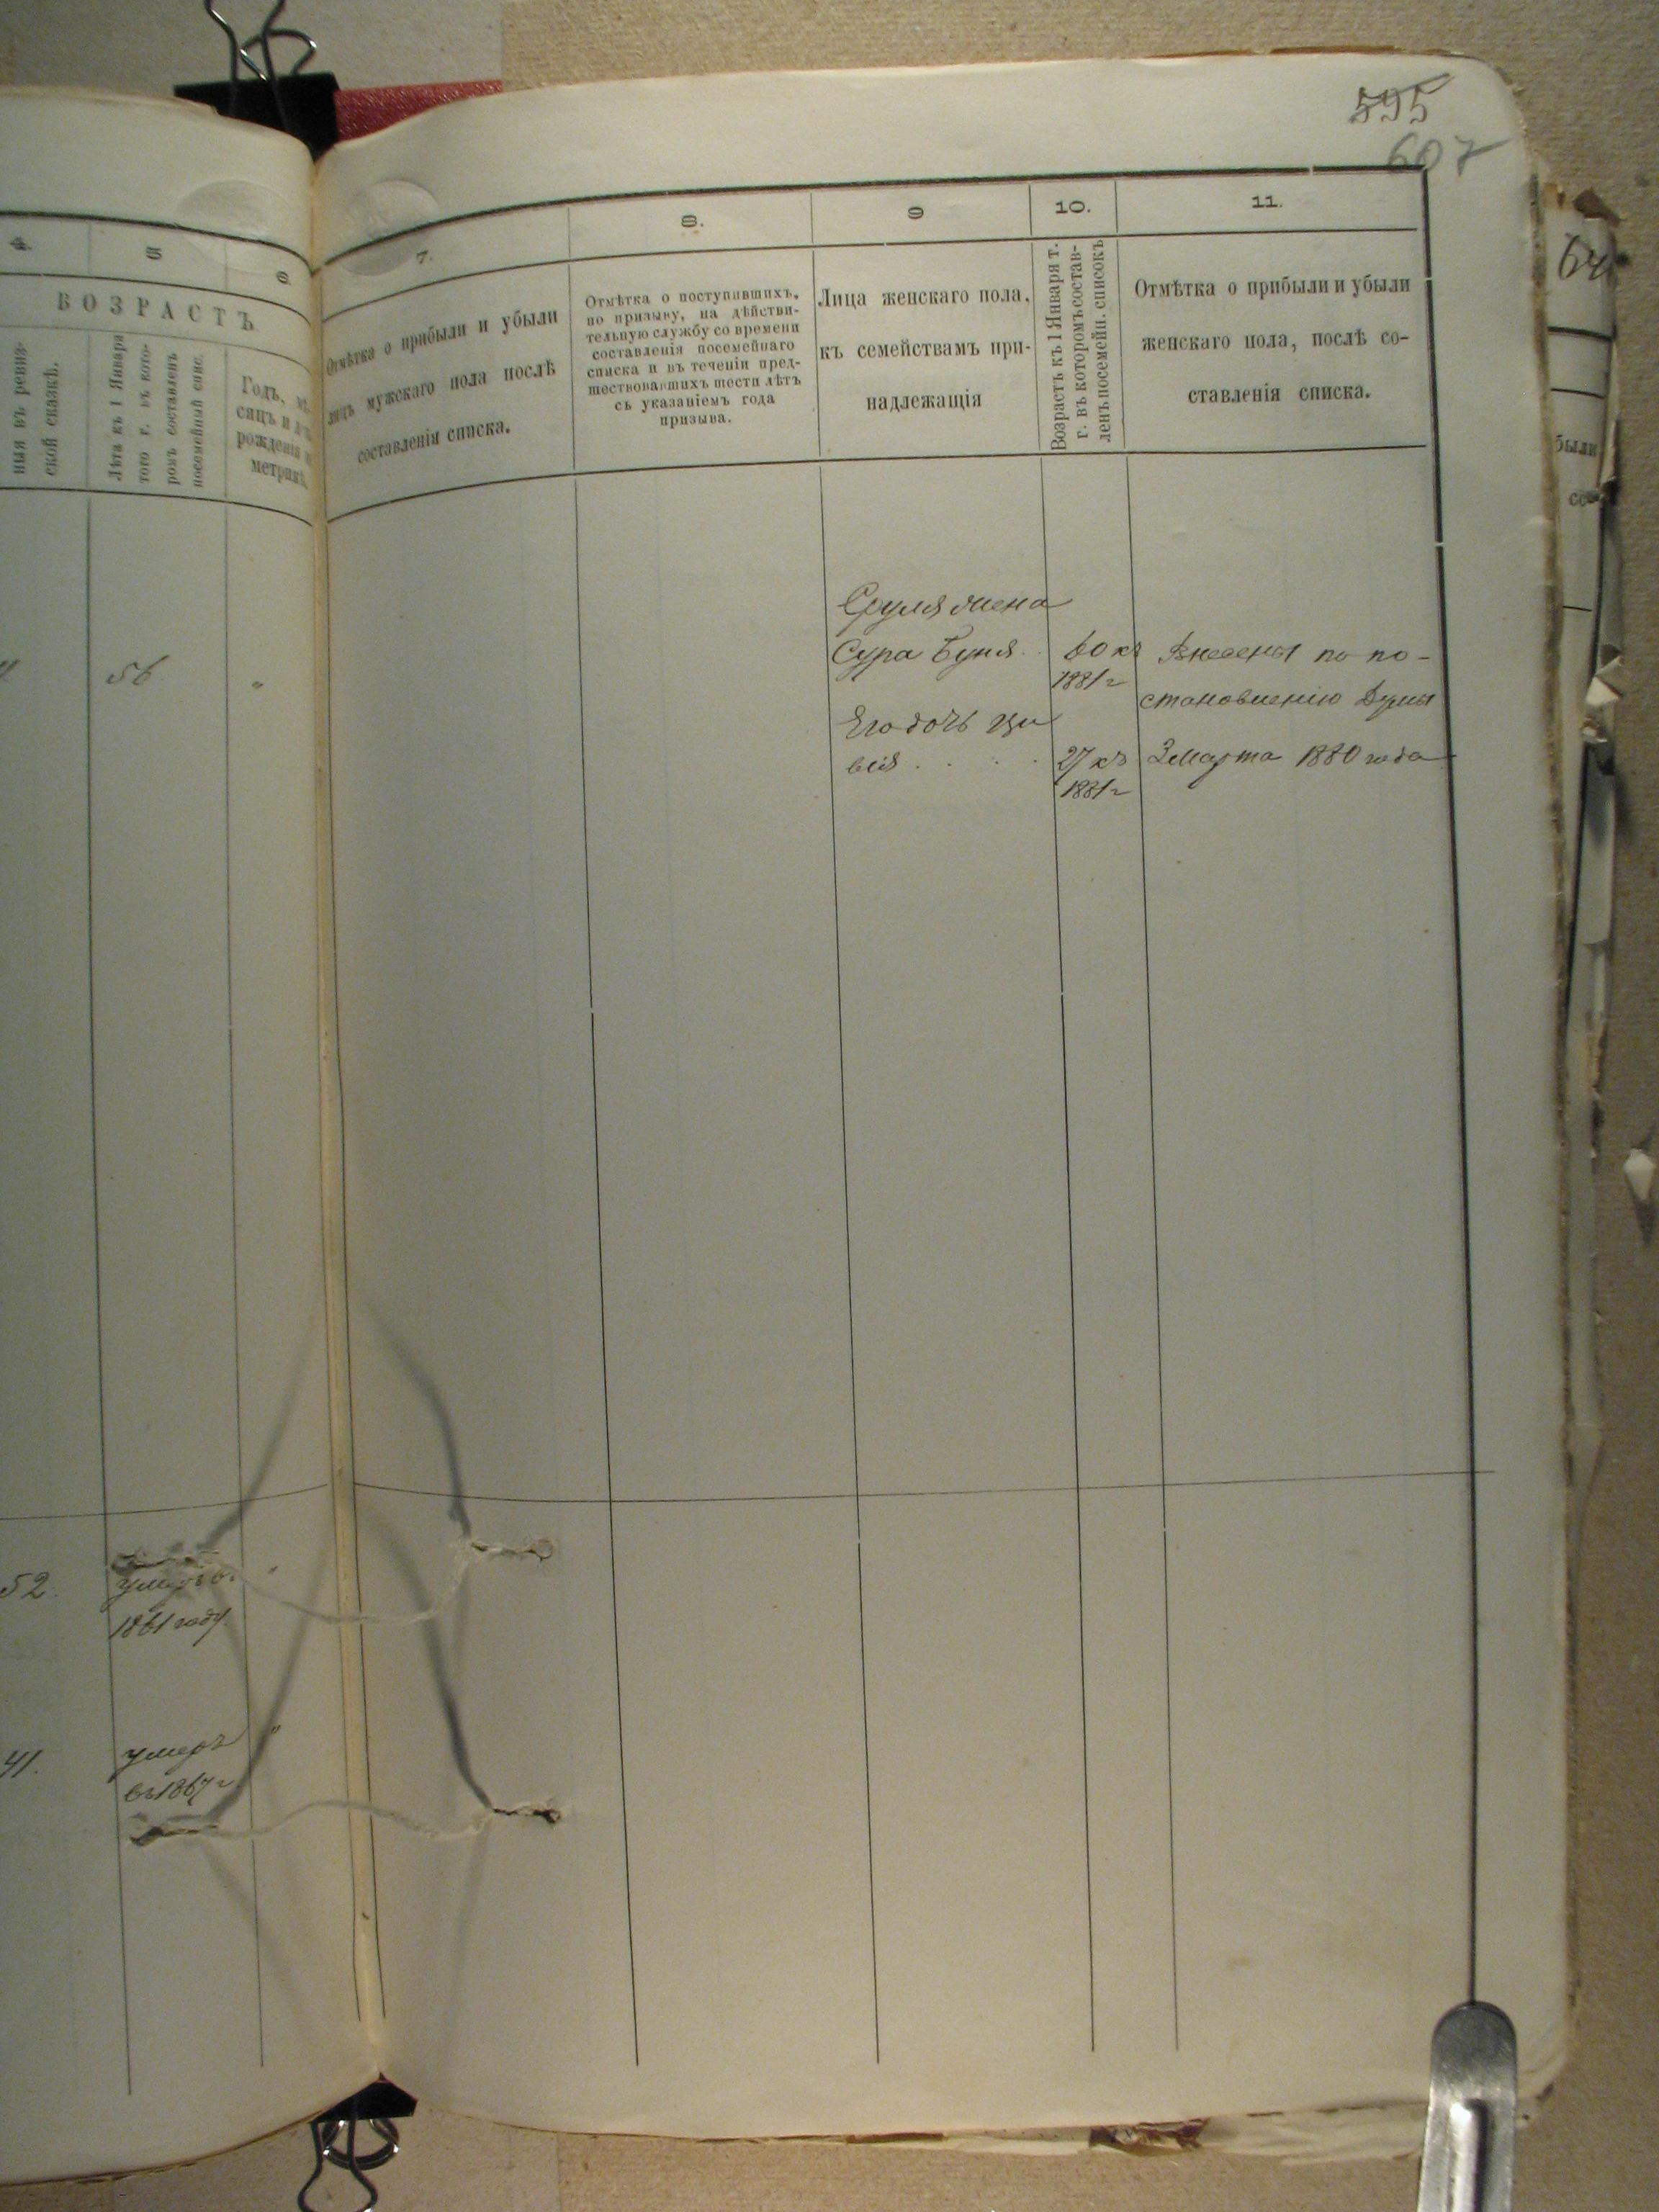 595
607
4.
5
6
ВОЗРАСТЪ
ныя въ ревиз-
ской сказкѣ.
Лѣта къ 1 Января
того г. въ кото-
ромъ составленъ
посемейный спис.
Годъ, мѣ-
сяцъ и
рожденія
метрикѣ.
56
"
52.
умеръ въ
1861 году.
41.
умеръ
въ 1867 г
"
7.
8.
9
10.
11.
Отмѣтка о прибыли и убыли
лицъ мужскаго пола послѣ
составленія списка.
Отмѣтка о поступившихъ,
по призыву, на дѣйстви-
тельную службу со времени
составленія посемейнаго
списка и въ теченіи пред-
шествовавшихъ шести лѣтъ
съ указаніемъ года
призыва.
Лица женскаго пола,
къ семействамъ при-
надлежащія
Возрастъ къ 1 Января т.
г. въ которомъ состав-
ленъ посемейн. списокъ
Отмѣтка о прибыли и убыли
женскаго пола, послѣ со-
ставленія списка.
Сруля жена
Сура Буня . . 60 къ Внесены по по-
1881 г
становленію Думы
Его дочь Ци
вія . . . . 27 къ 3 Марта 1880 года
1881 г
были
со